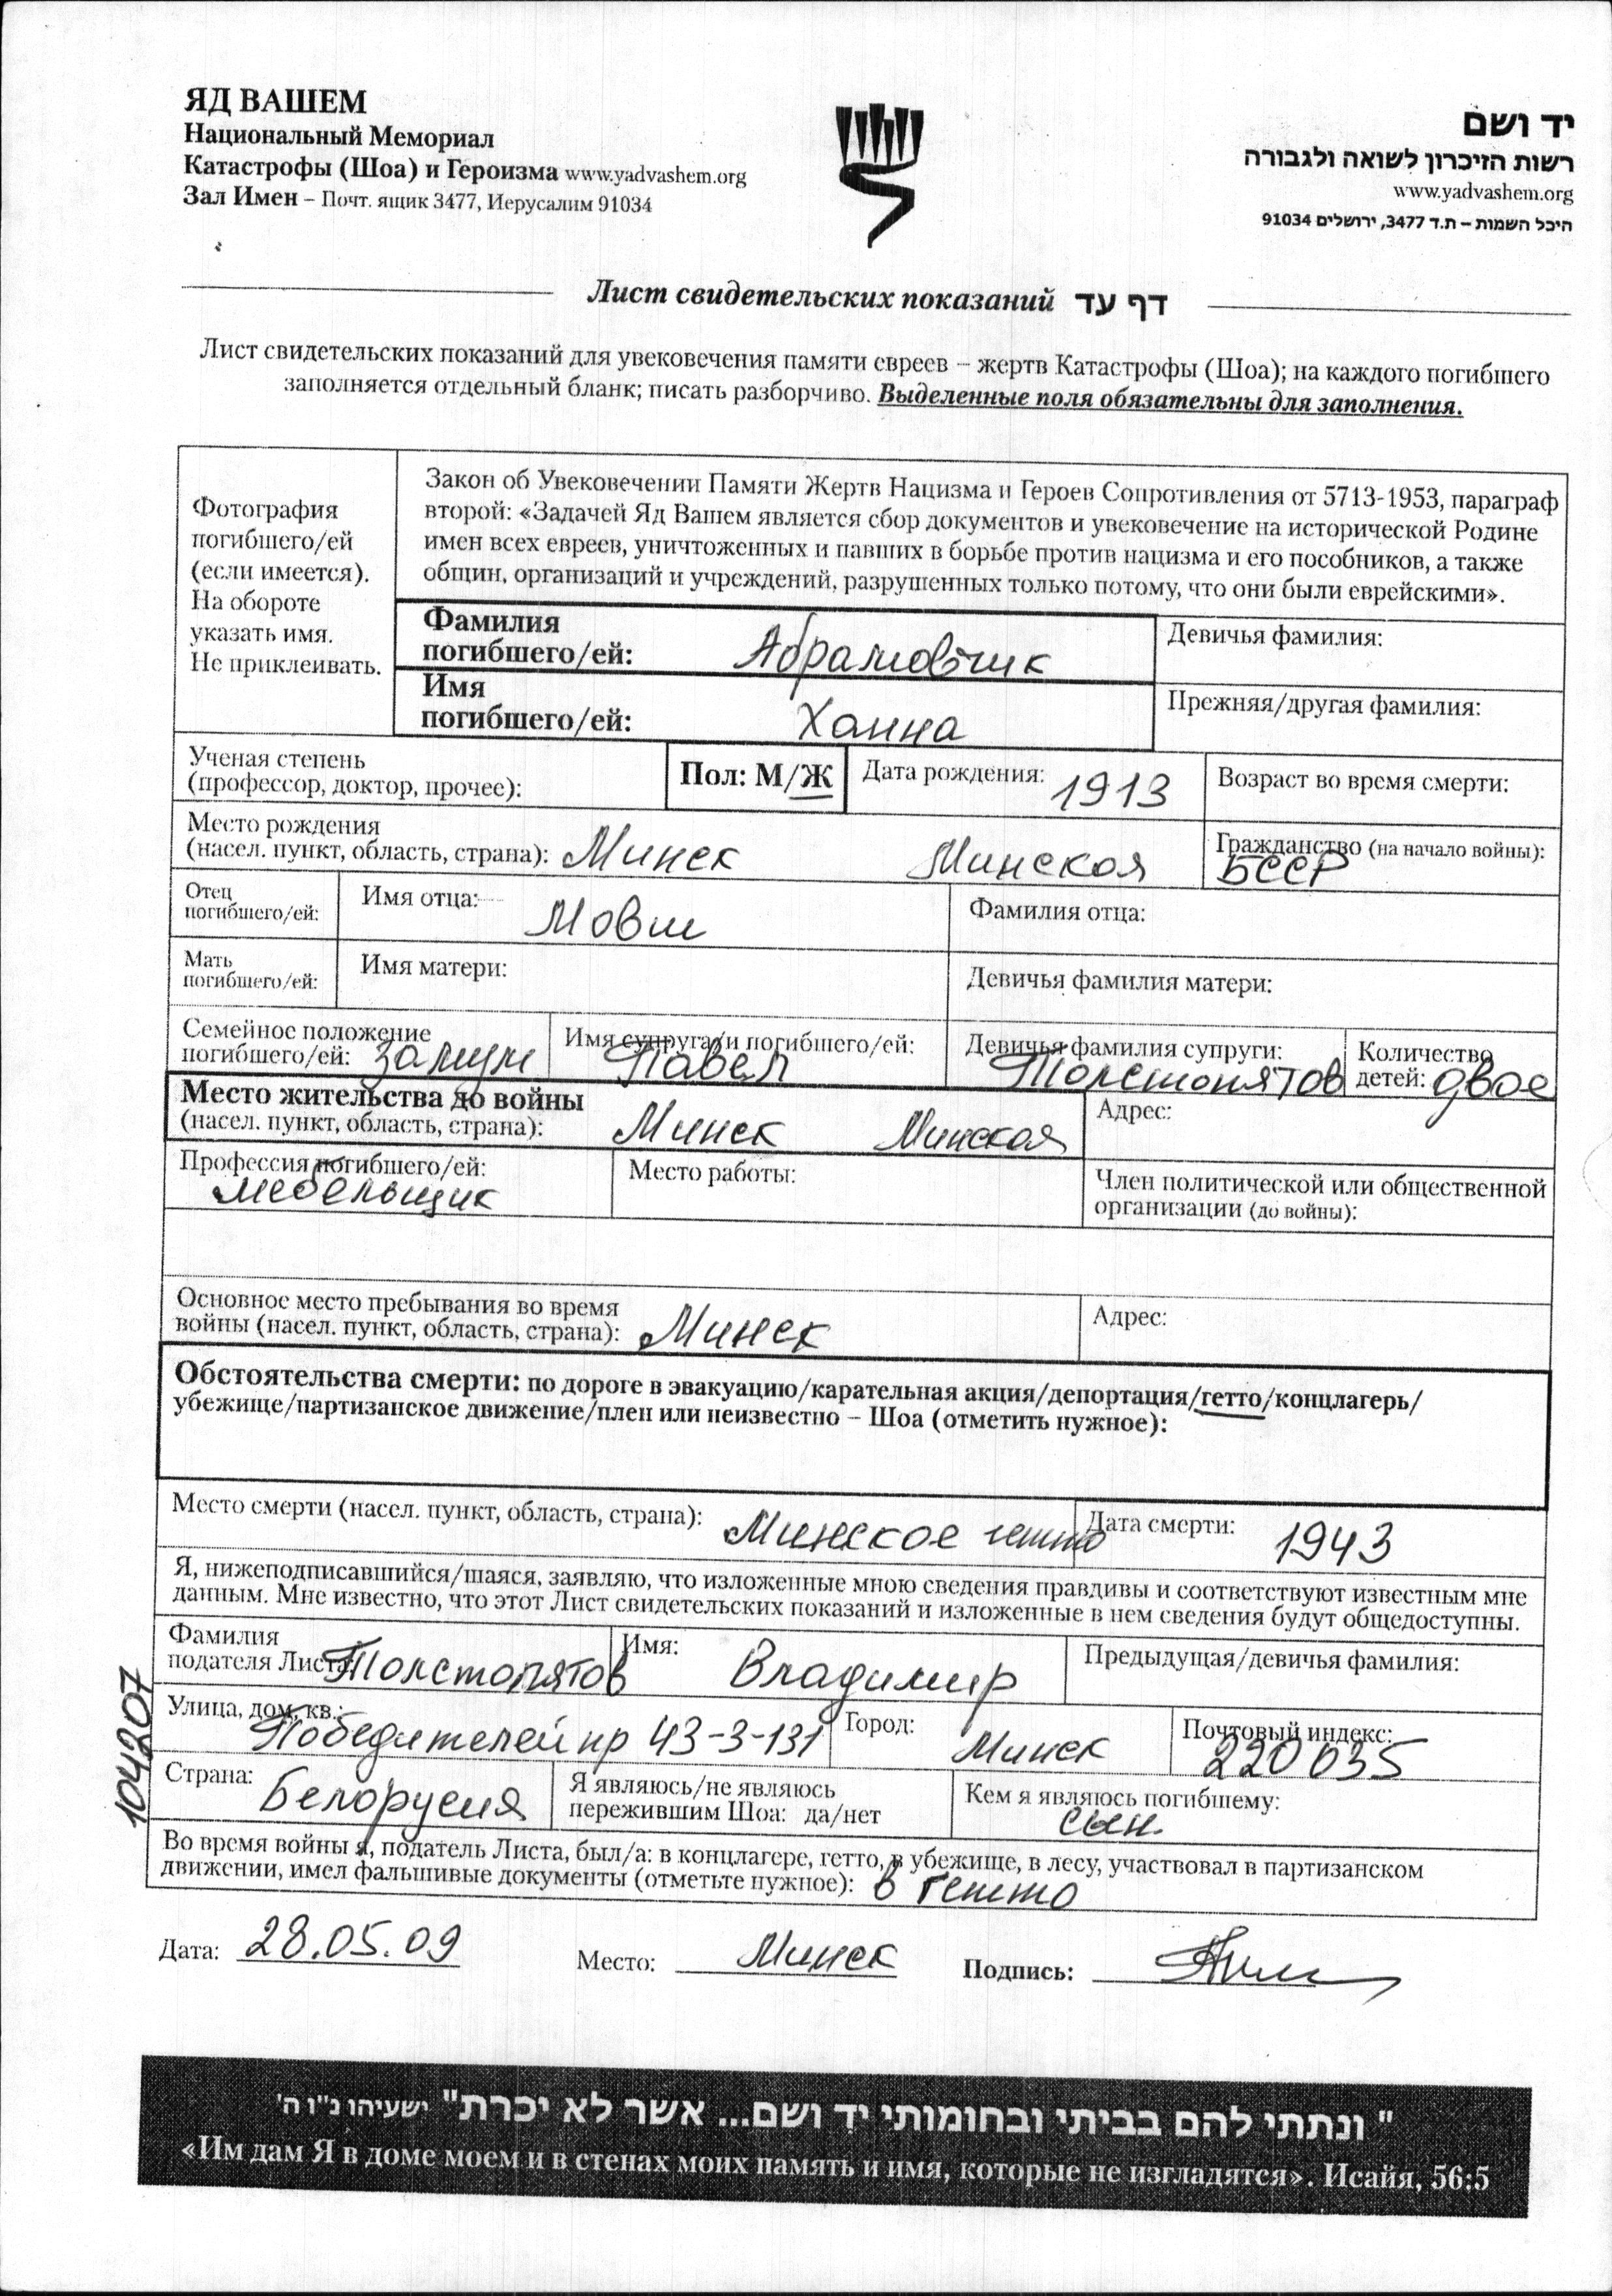 ЯД ВАШЕМ
Национальный Мемориал
Катастрофы (Шоа) и Героизма www.yadvashem.org
Зал Имен – Почт. ящик 3477, Иерусалим 91034
יד ושם
רשות הזיכרון לשואה ולגבורה
www.yadvashem.org
היכל השמות – ת.ד 3477, ירושלים 91034
Лист свидетельских показаний דף עד
Лист свидетельских показаний для увековечения памяти евреев – жертв Катастрофы (Шоа); на каждого погибшего
заполняется отдельный бланк; писать разборчиво. Выделенные поля обязательны для заполнения.
Фотография
погибшего/ей
(если имеется).
На обороте
указать имя.
Не приклеивать.
Закон об Увековечении Памяти Жертв Нацизма и Героев Сопротивления от 5713-1953, параграф
второй: «Задачей Яд Вашем является сбор документов и увековечение на исторической Родине
имен всех евреев, уничтоженных и павших в борьбе против нацизма и его пособников, а также
общин, организаций и учреждений, разрушенных только потому, что они были еврейскими».
Фамилия
погибшего/ей: Абрамовчик
Девичья фамилия:
Имя
погибшего/ей: Ханна
Прежняя/другая фамилия:
Ученая степень
(профессор, доктор, прочее):
Пол: М/Ж
Дата рождения: 1913
Возраст во время смерти:
Место рождения
(насел. пункт, область, страна): Минск Минская
Гражданство (на начало войны):
БССР
Отец
погибшего/ей:
Имя отца: Мовш
Фамилия отца:
Мать
погибшего/ей:
Имя матери:
Девичья фамилия матери:
Семейное положение
погибшего/ей: замуж
Имя супруга/и погибшего/ей:
Павел
Девичья фамилия супруги:
Толстопятов
Количество
детей: двое
Место жительства до войны
(насел. пункт, область, страна): Минск Минская
Адрес:
Профессия погибшего/ей:
мебельщик
Место работы:
Член политической или общественной
организации (до войны):
Основное место пребывания во время
войны (насел. пункт, область, страна): Минск
Адрес:
Обстоятельства смерти: по дороге в эвакуацию/карательная акция/депортация/гетто/концлагерь/
убежище/партизанское движение/плен или неизвестно – Шоа (отметить нужное):
Место смерти (насел. пункт, область, страна): Минское гетто
Дата смерти: 1943
Я, нижеподписавшийся/шаяся, заявляю, что изложенные мною сведения правдивы и соответствуют известным мне
данным. Мне известно, что этот Лист свидетельских показаний и изложенные в нем сведения будут общедоступны.
Фамилия
подателя Листа: Толстопятов
Имя: Владимир
Предыдущая/девичья фамилия:
Улица, дом, кв.:
Победителей пр 43-3-131
Город: Минск
Почтовый индекс:
220035
Страна: Белорусия
Я являюсь/не являюсь
пережившим Шоа: да/нет
Кем я являюсь погибшему:
сын.
Во время войны я, податель Листа, был/а: в концлагере, гетто, в убежище, в лесу, участвовал в партизанском
движении, имел фальшивые документы (отметьте нужное): в гетто
104207
Дата: 28.05.09 Место: Минск Подпись:
" ונתתי להם בביתי ובחומותי יד ושם... אשר לא יכרת" ישעיהו נ"ו ה'
«Им дам Я в доме моем и в стенах моих память и имя, которые не изгладятся». Исайя, 56:5